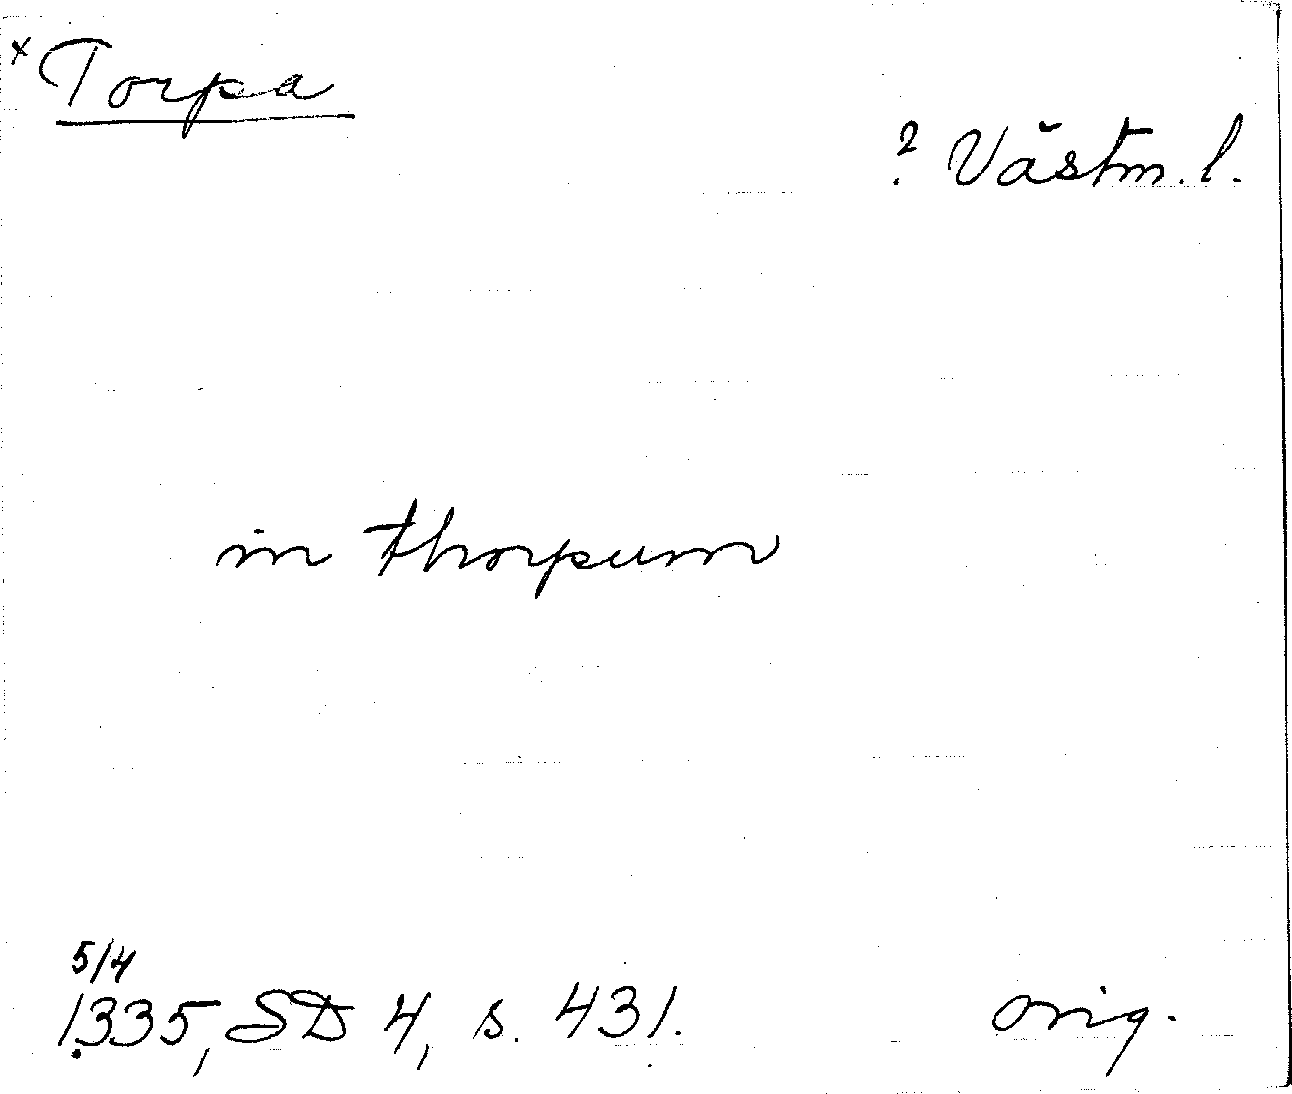 x Torpa
? Västm. l.
in thorpum
5/4
1335, SD 4, s. 431. orig.